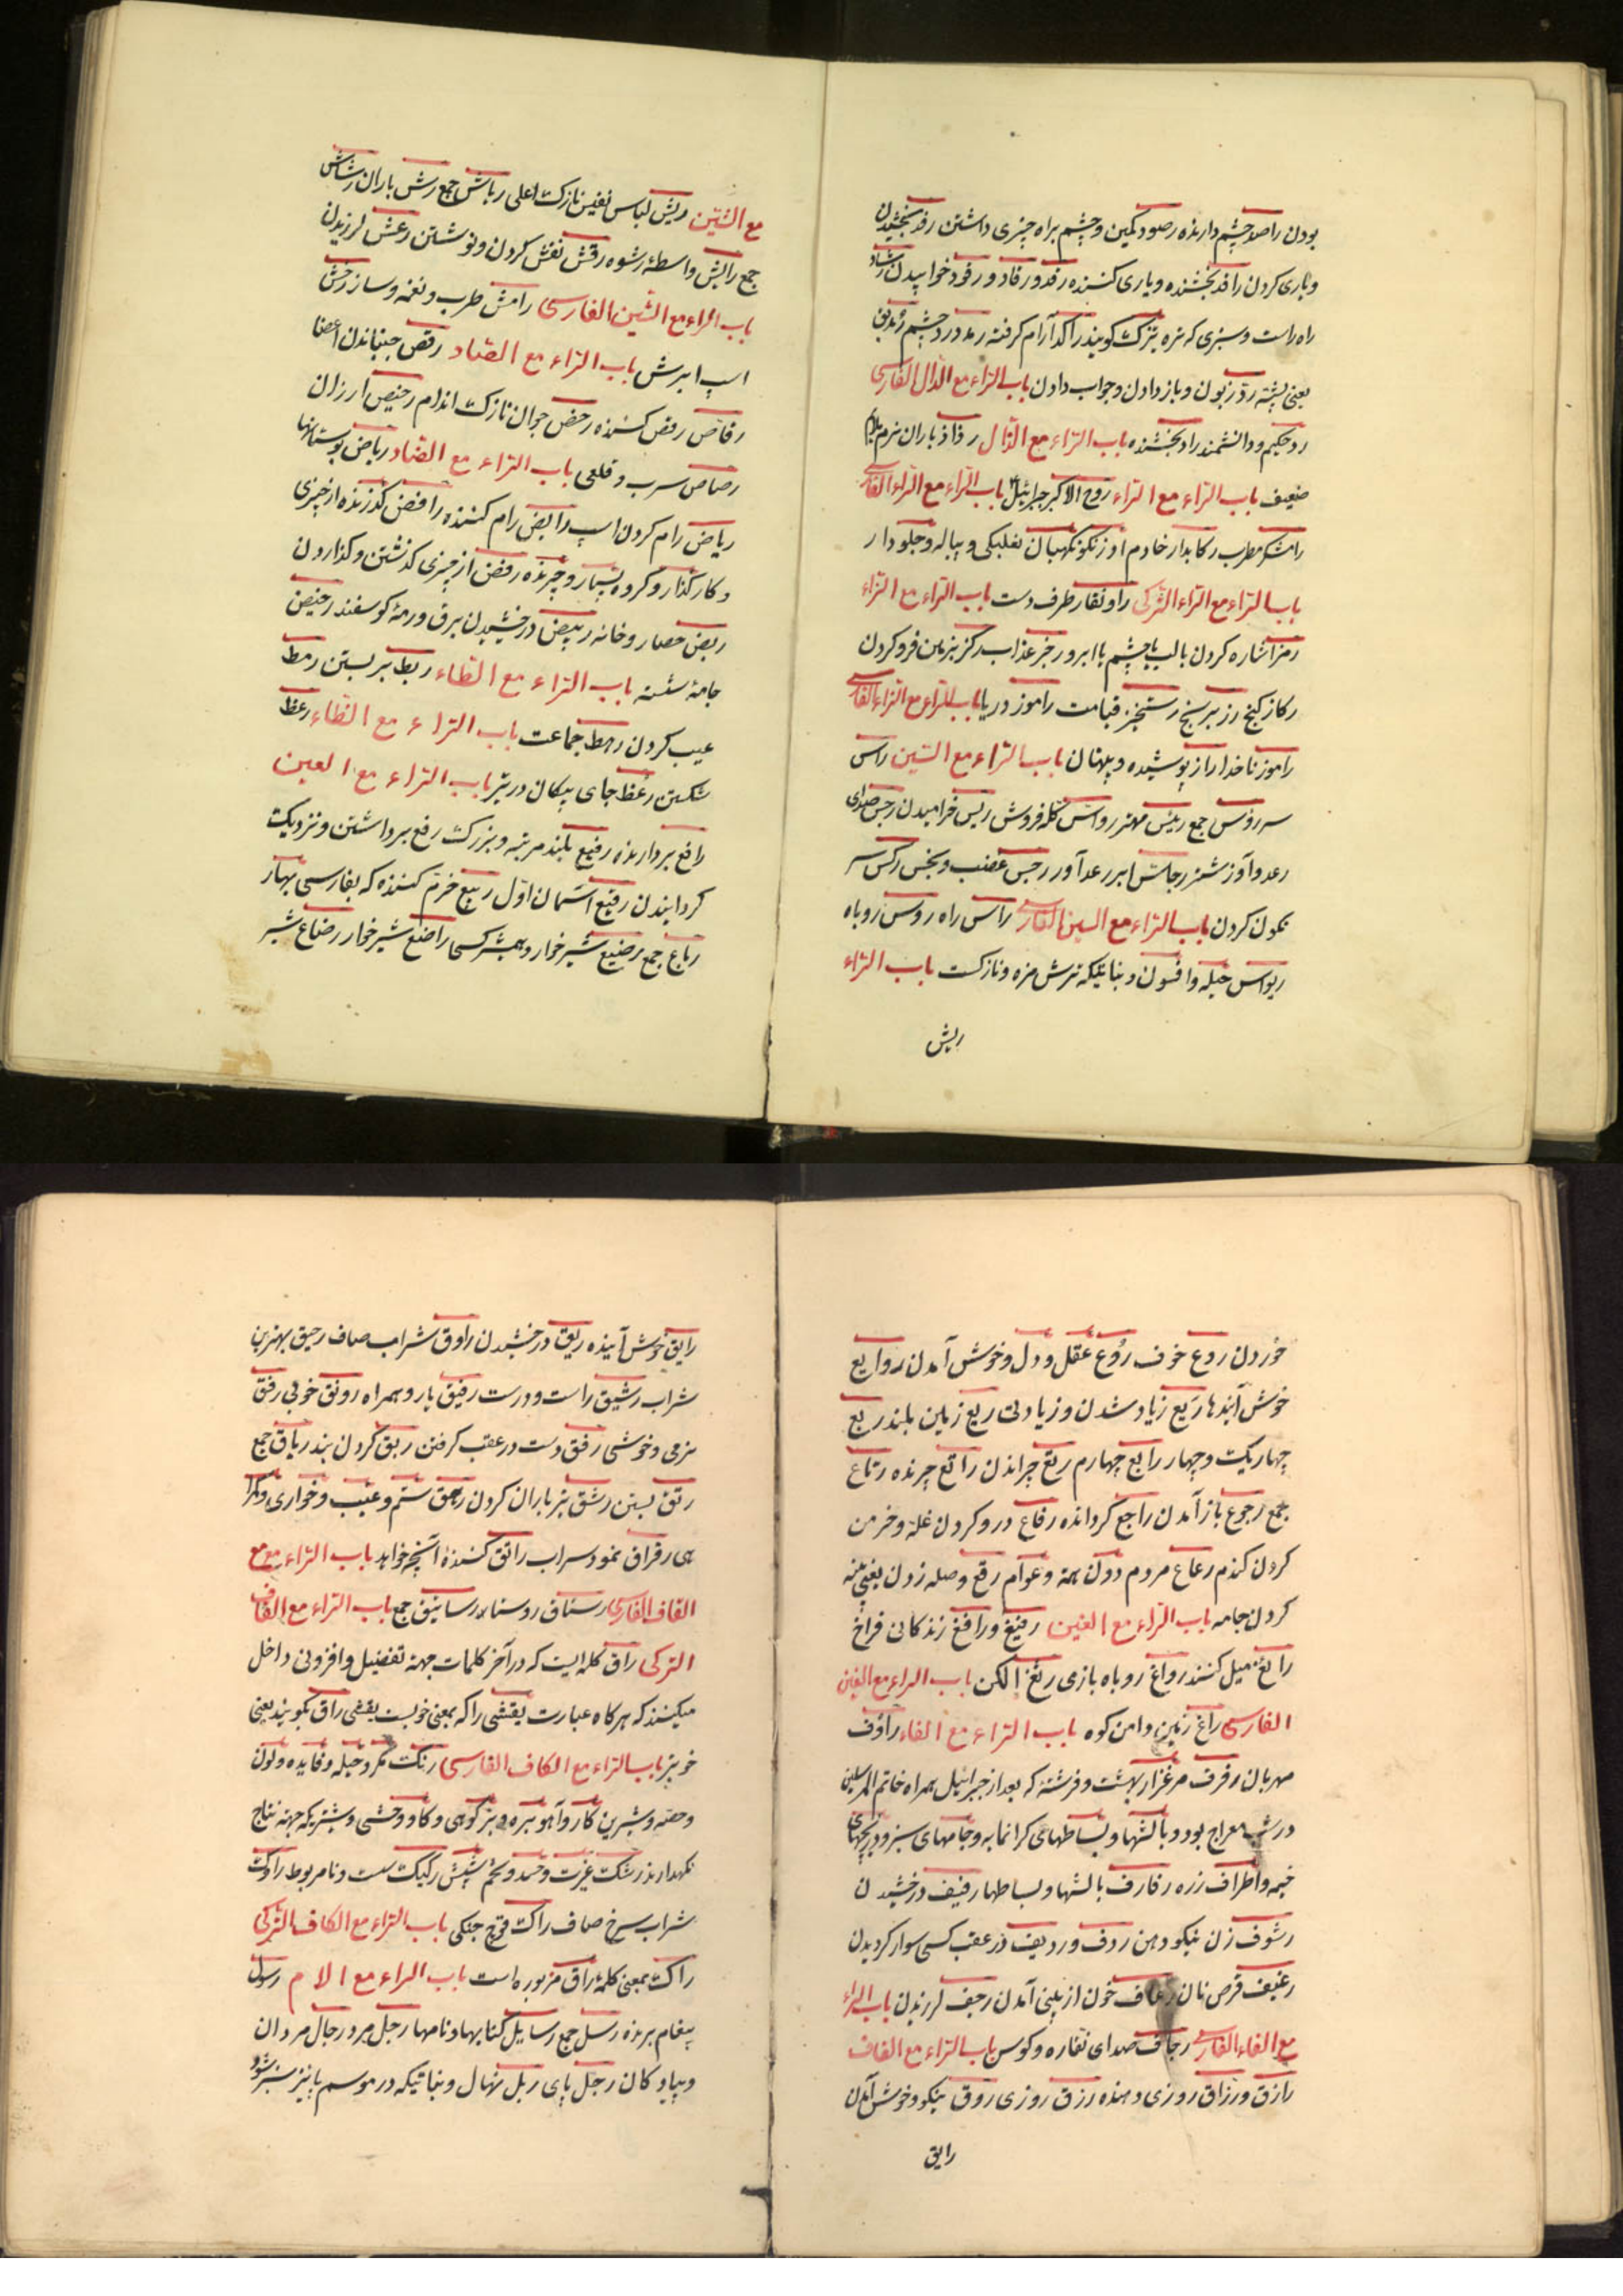 بودن راصد چشم دارنده رصود کمین و چشم براه چیزی داشتن رفد بخشیدن
و یاری کردن رافد بخشنده و یاری کننده رقد و رقاد و رقود خوابیدن رشاد
راه راست و سبزی که تره تیزک گویند راکد آرام گرفته رمد درد چشم
یعنی پشته ردّ زبون و باز دادن و جواب دادن باب الرّاء مع الدّال الفارسی
رد حکیم و دانشمند راد بخشنده باب الرّاء مع الذّال رذاذ باران نرم
ضعیف باب الرّاء مع الرّاء روح الاکبر جبرائیل باب الرّاء مع الرّاء الفارسی
رامشگر مطرب رکابدار خادم اوزنگو نگهبان نعلبکی و پیاله و جلودار
باب الرّاء مع الرّاء الترکی راونقار طرف دست باب الرّاء مع الزّاء
رمز اشاره کردن با لب یا چشم یا ابرو رجز عذاب رکز بزمین فرو کردن
رکاز گنج رز برنج رستخیز قیامت راموز دریا باب الرّاء مع الزّاء الفارسی
راموز ناخدا راز پوشیده و پنهان باب الرّاء مع السّین راس
سر رؤس جمع رئیس مهتر روّاس کلّه فروش ریس خرامیدن رجس صدای
رعد و آواز شتر رجّاس ابر رعدآور رجس غضب و نجس رکس سر
نگون کردن باب الرّاء مع السین الفارسی راس راه روس روباه
ریواس حیله و افسون و نباتیکه ترش مزه و نازکست باب الرّاء
ریش
مع الشّین ریش لباس نفیس نازک اعلی ریاش جمع رش باران رشاش
جمع رایش واسطهٔ رشوه رقش نقش کردن و نوشتن رعش لرزیدن
باب الراء مع الشّین الفارسی رامش طرب و نغمه و ساز رخش
اسپ ابرش باب الرّاء مع الصّاد رقص جنباندن اعضا
رقّاص رقص کننده رخص جوان نازک اندام رخیص ارزان
رصاص سرب و قلعی باب الرّاء مع الضّاد ریاض بوستانها
ریاض رام کردن اسپ رایض رام کننده رافض گذرنده از چیزی
و کارگذار و گروه بسیار و چرنده رفض از چیزی گذشتن و گذاردن
ربض حصار و خانه ربیض درخشیدن برق و رمهٔ گوسفند رحیض
جامهٔ شسته باب الرّاء مع الطّاء ربط بر بستن رمط
عیب کردن رهط جماعت باب الرّاء مع الظّاء رعظ
شکستن رعظ جای پیکان در تیر باب الرّاء مع العین
رافع بردارنده رفیع بلند مرتبه و بزرک رفع برداشتن و نزدیک
گردانیدن رقیع آسمان اوّل ربیع خرّم کننده که بفارسی بهار
رباع جمع رضیع شیرخوار و همشیر کسی راضع شیرخوار رضاع شیر
خوردن روع خوف رُوع عقل و دل و خوش آمدن روایع
خوش آیندها رَیع زیاد شدن و زیادتی ریع زمین بلند ربع
چهاریک و چهار رابع چهارم رتع چرانیدن راتع چرنده رتاع
جمع رجوع باز آمدن راجع گرداننده رفاع درو کردن غله و خرمن
کردن گندم رعاع مردم دون همة و عوام رقع وصله زدن یعنی پینه
کردن جامه باب الرّاء مع الغین رفیغ و رافغ زندکانی فراخ
رایغ میل کننده رواغ روباه بازی رثغ الکن باب الراء مع الغین
الفارسی راغ زمین دامن کوه باب الرّاء مع الفاء راؤف
مهربان رفرف مرغزار بهشت و فرشته که بعد از جبرائیل همراه خاتم المرسلین
در شب معراج بود و بالشها و بساطهای گرانمایه و جامهای سبز و دریچهای
خیمه و اطراف زره رفارف بالشها و بساطها رفیف درخشیدن
رشوف زن نیکو دهن ردف و ردیف در عقب کسی سوار گردیدن
رغیف قرص نان رعاف خون از بینی آمدن رجف لرزیدن باب الراء
مع الفاء الفارسی رجاف صدای نقاره و کوس باب الرّاء مع القاف
رازق و رزّاق روزی دهنده رزق روزی روق نیکو و خوش آمدن
رایق
رایق خوش آینده ریق درخشیدن راوق شراب صاف رحیق بهترین
شراب رشیق راست و درست رفیق یار و همراه رونق خوبی رفق
نرمی و خوشی رفق دست در عقب گرفتن ربق کردن بند ریاق جمع
رتق بستن رشق تیرباران کردن رهق ستم و عیب و خواری
رقراق نمود سراب راتق کنندهٔ آنچه خواهد باب الرّاء مع
القاف الفارسی رستاق روستا رساتیق جمع باب الرّاء مع القاف
الترکی راق کلمه ایست که در آخر کلمات جهة تفضیل و افزونی داخل
میکنند که هرکاه عبارت یقشی را که بمعنی خوبست یقشی راق بگویند یعنی
خوبتر باب الرّاء مع الکاف الفارسی رنک مکر و حیله و فایده و لون
و حصّه و شیرین کار و آهو بره و بز کوهی و کاو وحشی و شتریکه جهة نتاج
نگهدارند رشک غیرت و حسد و تخم شپش رکیک سست و نامربوط راوک
شراب سرخ صاف راک قوچ جنکی باب الرّاء مع الکاف الترکی
راک بمعنی کلمهٔ راق مزبوره است باب الراء مع الام رسول
پیغام برنده رسل جمع رسایل کتابها و نامها رجل مرد رجال مردان
و پیادکان رجل پای ربل نهال و نباتیکه در موسم پاییز سبز شود